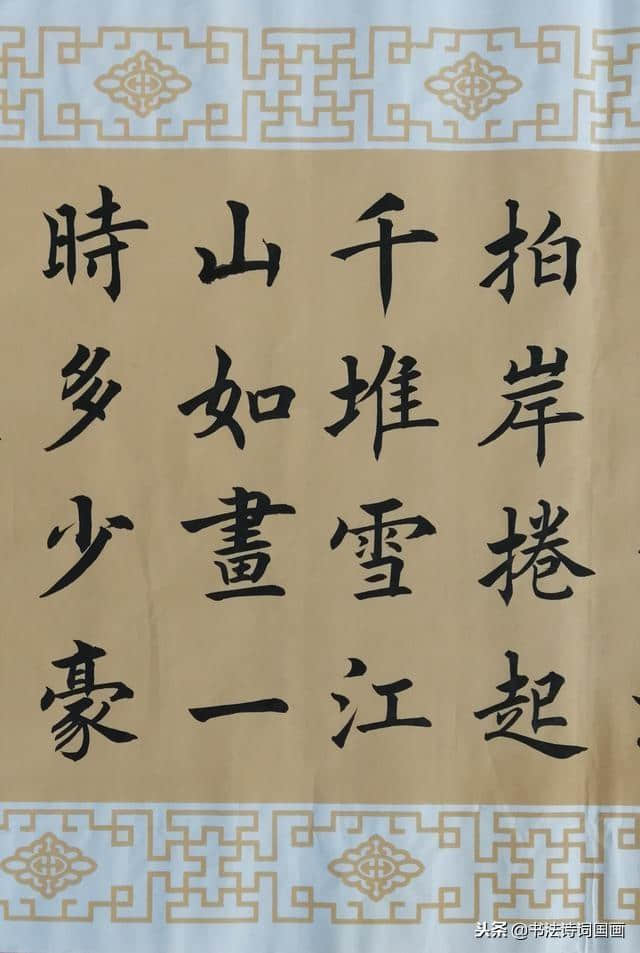 拍岸捲起
千堆雪江
山如畫一
時多少豪
头条 @书法诗词国画